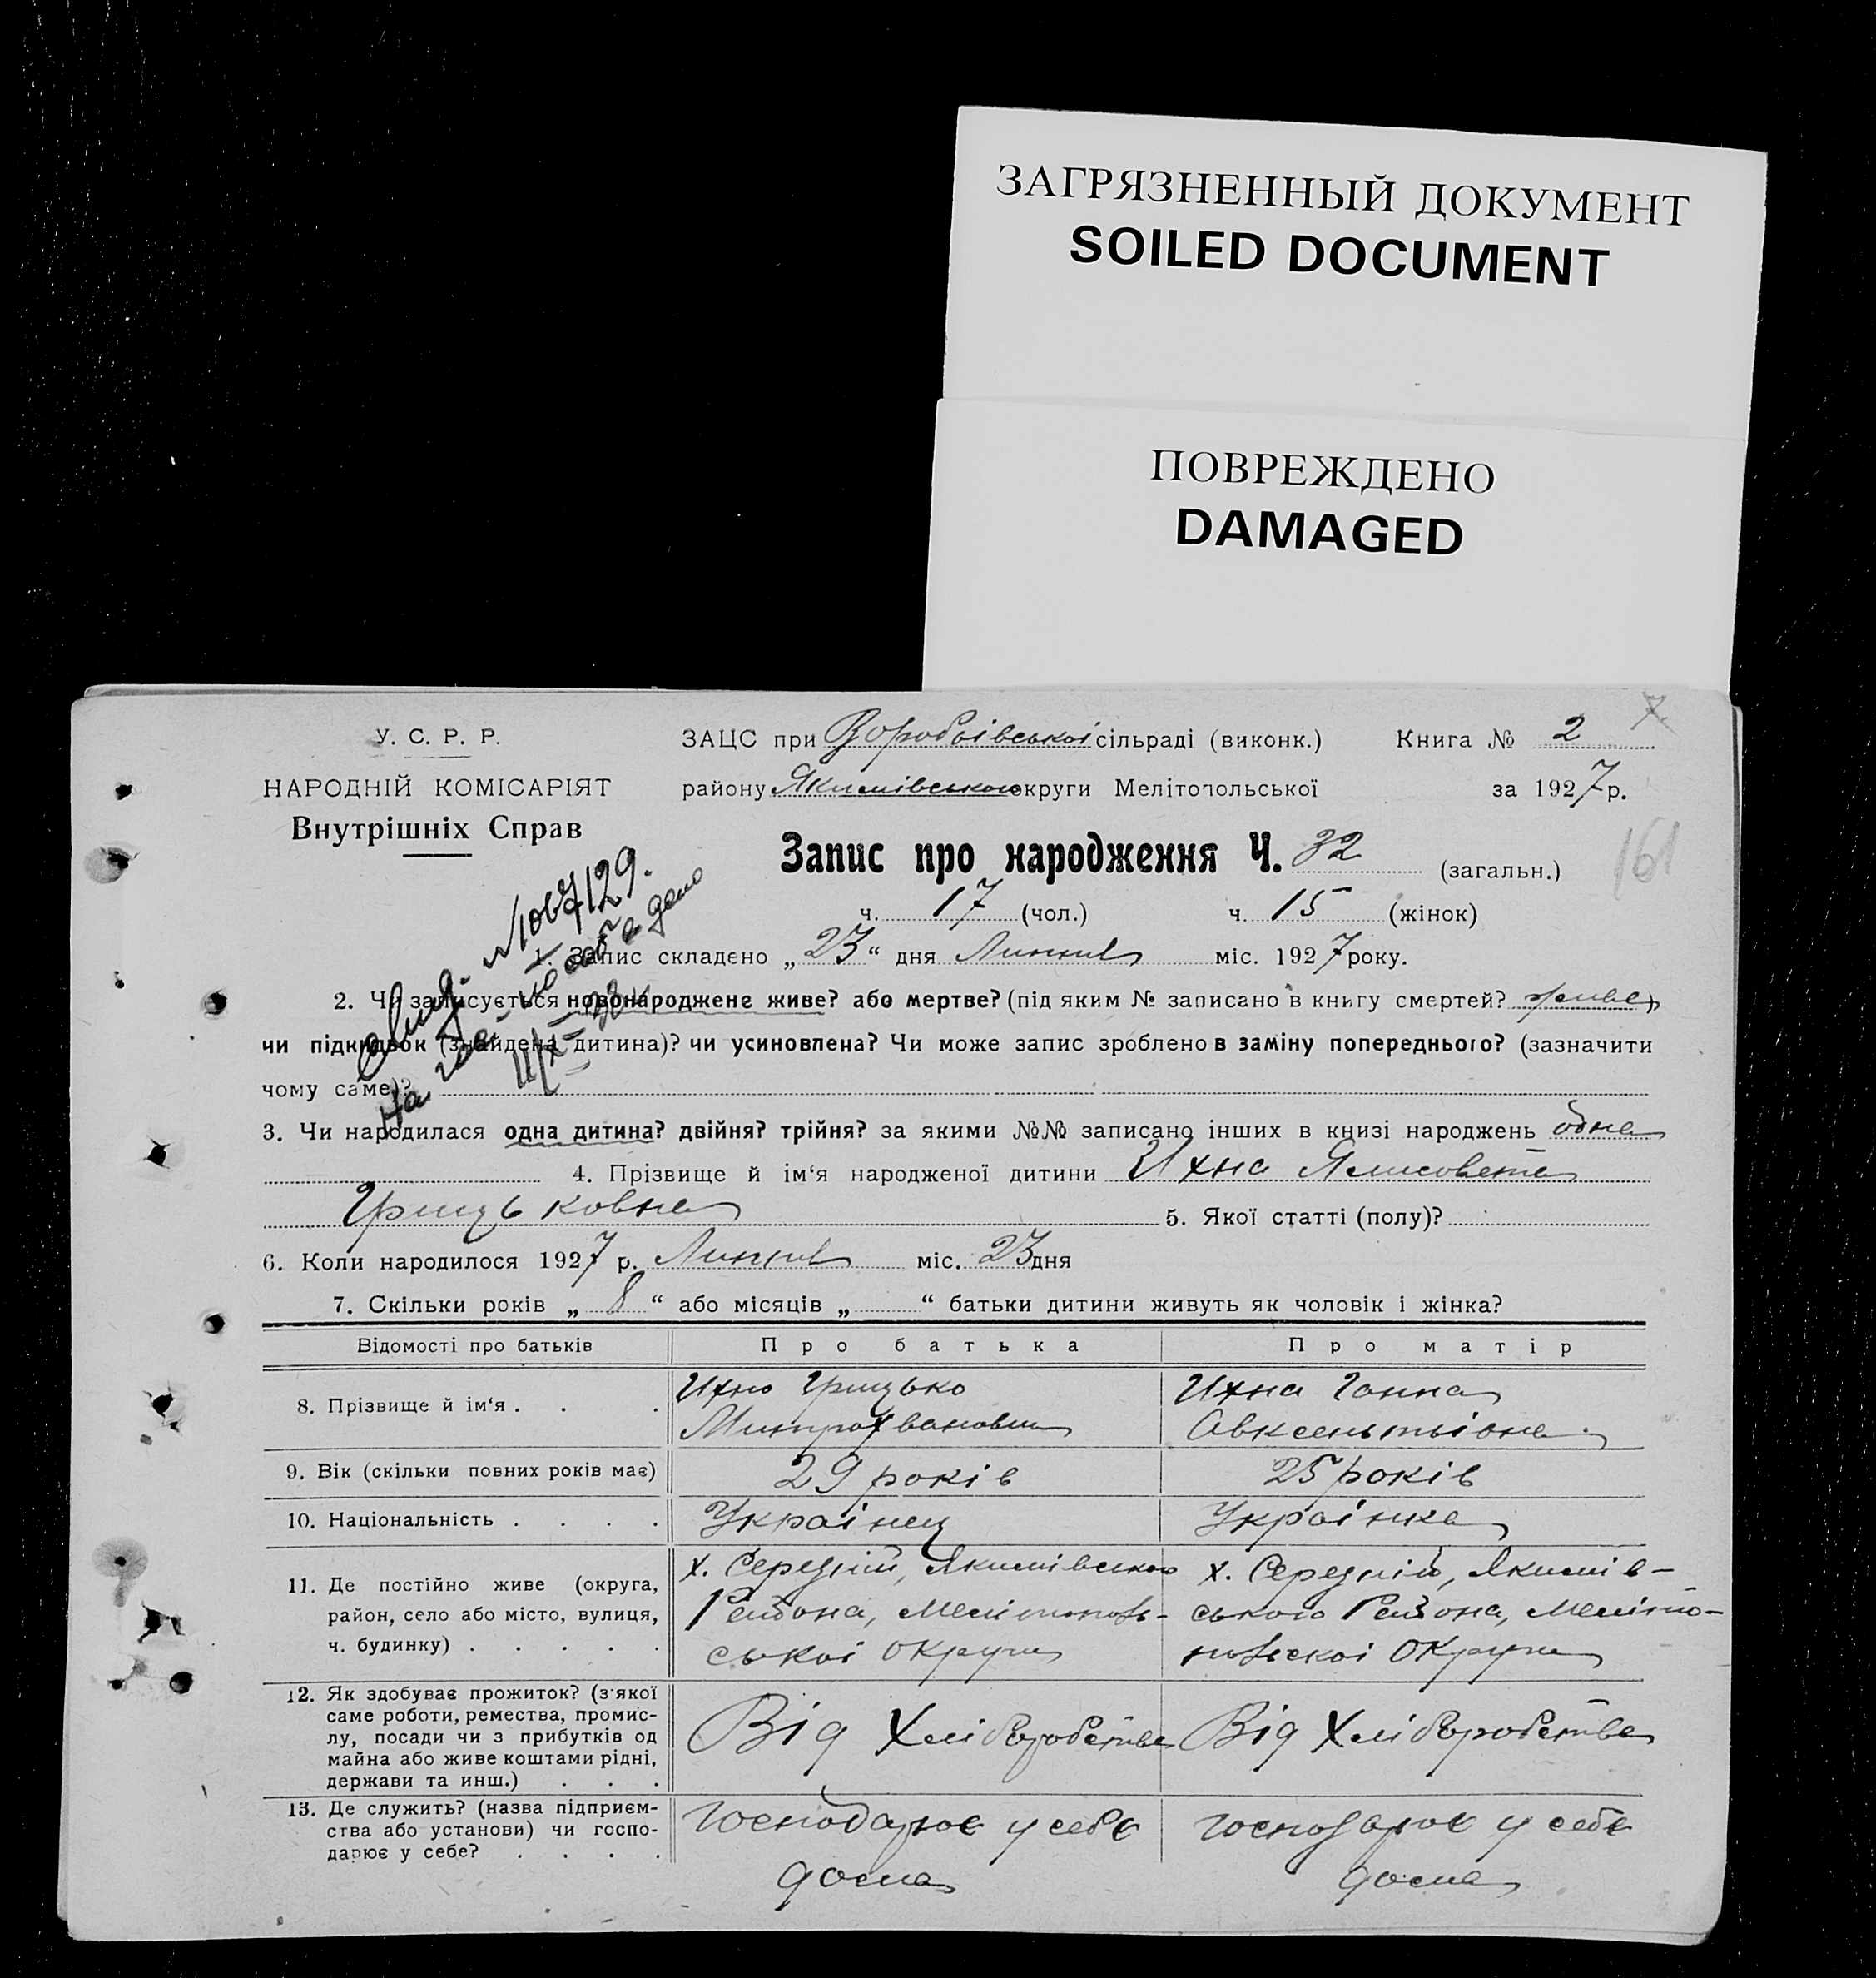 ЗАГРЯЗНЕННЫЙ ДОКУМЕНТ
SOILED DOCUMENT
ПОВРЕЖДЕНО
DAMAGED
У. С. Р. Р.
НАРОДНІЙ КОМІСАРІЯТ
Внутрішніх Справ
ЗАЦС при Воробоівськоі сільраді (виконк.) Книга № 2
району Якимівського округи Мелітопольської за 1927 р.
161
Запис про народження Ч. 32 (загальн.)
ч. 17 (чол.) ч. 15 (жінок)
1. Запис складено „ 23 “ дня Липня міс. 1927 року.
2. Чи записується новонароджене живе? або мертве? (під яким № записано в книгу смертей? живе)
чи підкидьок (знайдена дитина)? чи усиновлена? Чи може запис зроблено в заміну попереднього? (зазначити
чому саме)?
3. Чи народилася одна дитина? двійня? трійня? за якими №№ записано інших в книзі народжень одна
4. Прізвище й ім‘я народженої дитини Ихна Ялисовета
Грицьковна 5. Якої статті (полу)?
6. Коли народилося 1927 р. Липня міс. 23 дня
7. Скільки років „ 8 “ або місяців „ “ батьки дитини живуть як чоловік і жінка?
Відомості про батьків Про батька Про матір
8. Прізвище й ім‘я . . . Ихно Грицько Митрофванович Ихна Ганна Авксентьівна
9. Вік (скільки повних років має) 29 років 25 років
10. Національність . . . . Украінец Украінка
11. Де постійно живе (округа,
район, село або місто, вулиця,
ч. будинку) . . . . .
х. Середній, Якимівського
Района, Мелітополь-
ськоі Округи
х. Середній, Якимів-
ського Района, Меліто-
польскоі Округи
12. Як здобуває прожиток? (з‘якої
саме роботи, ремества, промис-
лу, посади чи з прибутків од
майна або живе коштами рідні,
держави та инш.) . . .
Від Хліборобства Від Хліборобства
13. Де служить? (назва підприєм-
ства або установи) чи госпо-
дарює у себе? . . . .
господарює у себе
дома
господарює у себе
дома